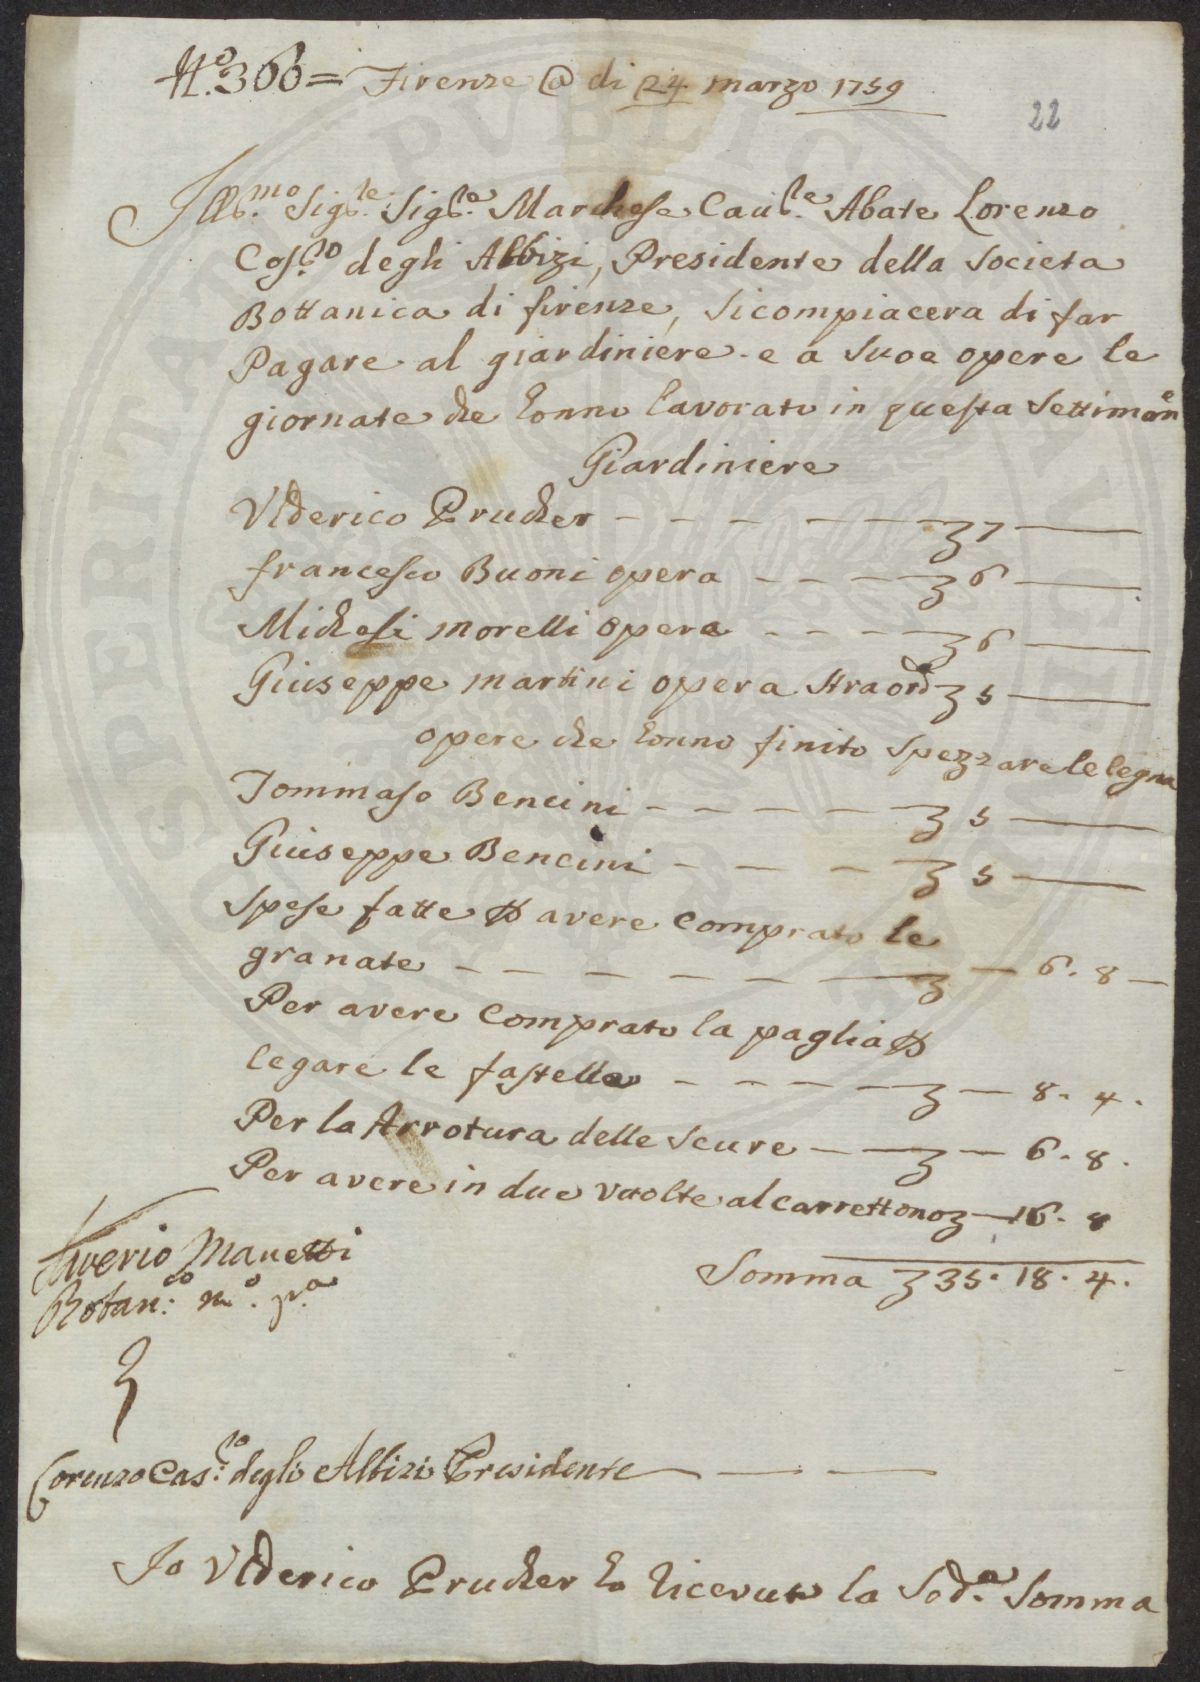 N.º 366 = Firenze @ di 24 marzo 1759
22
Ill.mo Sig.re Sig.re Marchese Cau.re Abate Lorenzo
Cas.lo degli Albizi, Presidente della Societa
Bottanica di firenze, Sicompiacera di far
Pagare al giardiniere e a Suoe opere le
giornate che honno lavorato in questa Settimana
Giardiniere
Vlderico Prucher - - - - - - ʒ 7 —
francesco Buoni opera - - - - ʒ 6 —
Michesi morelli opera - - - - ʒ 6 —
Giuseppe martini opera Straord.a ʒ 5 —
opere che honno finito Spezzare le legna
Tommaso Bencini - - - - - ʒ 5 —
Giuseppe Bencini - - - - ʒ 5 —
Spese fatte p avere comprato le
granate - - - - - - ʒ — 6. 8 —
Per avere comprato la paglia p
legare le fastella - - - - ʒ — 8. 4.
Per la Arrotura delle Scure — ʒ — 6. 8.
Per avere in due vuolte al carrettono ʒ — 16. 8
Somma ʒ 35. 18. 4.
Saverio Manetti
Botan.co m.o p.a
Lorenzo Cas.lo degli Albizi Presidente
Io Vlderico Prucher ho ricevuto la Sod.a Somma